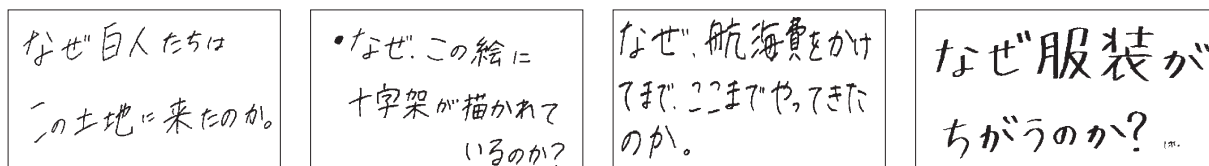 なぜ白人たちは
この土地に来たのか。
•なぜ、この絵に
十字架が描かれて
いるのか?
なぜ、航海費をかけ
てまで、ここまでやってきた
のか。
なぜ服装が
ちがうのか?